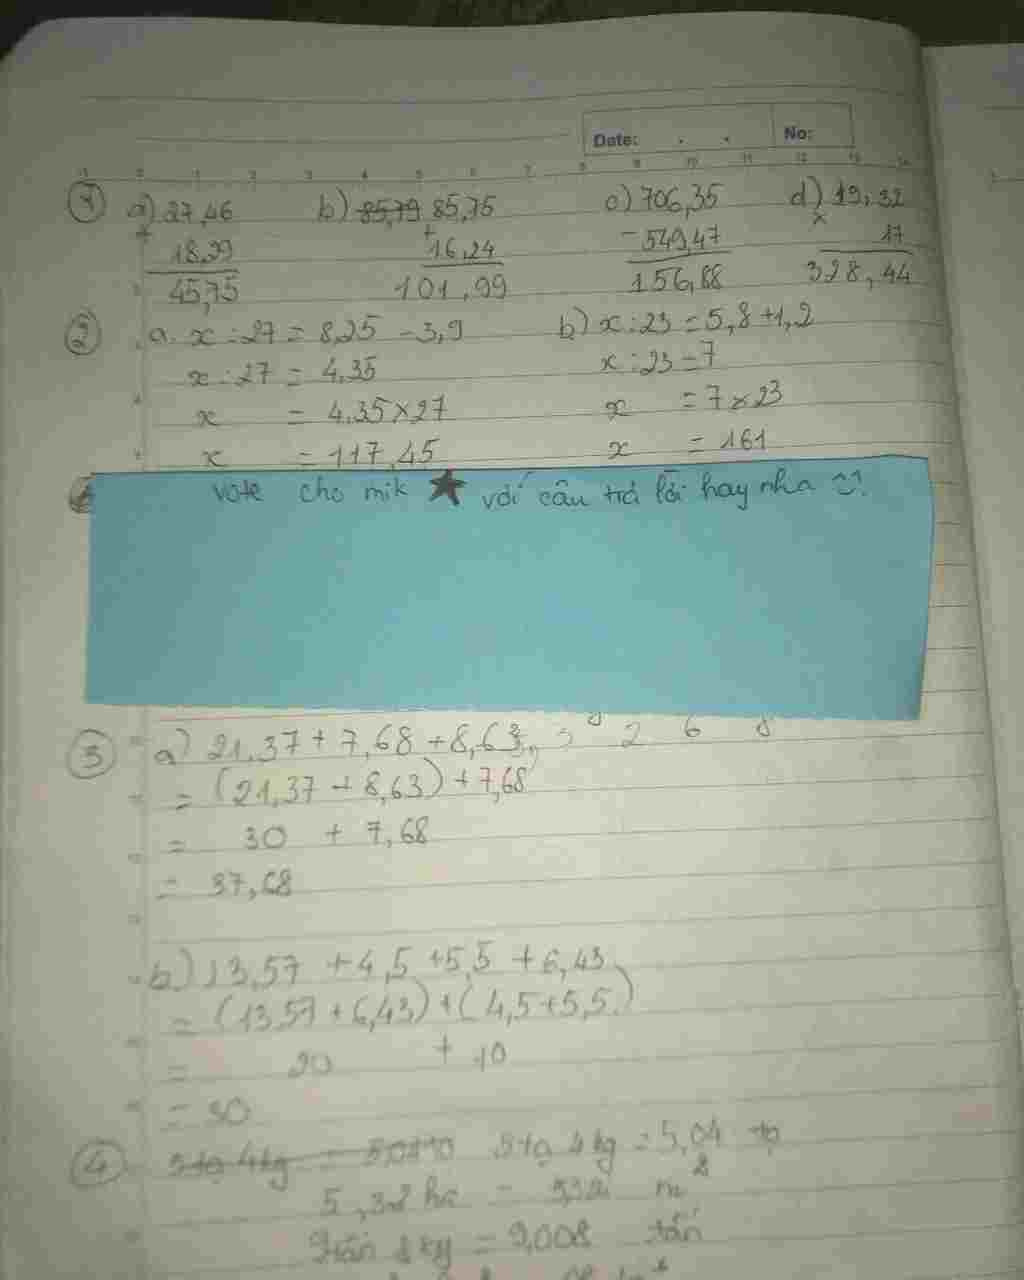 Date: . . No:
-1 0 1 2 3 4 5 6 7 8 9 10 11 12 13 14
1 a) 27,46 b) 85,79 85,75 c) 706,35 d) 19,32
+ 18,29 + 16,24 - 549,47 x 17
45,75 101,99 156,88 328,44
2 a. x : 27 = 8,25 - 3,9 b) x : 23 = 5,8 + 1,2
x : 27 = 4,35 x : 23 = 7
x = 4,35 x 27 x = 7 x 23
x = 117,45 x = 161
vote cho mik ★ với câu trả lời hay nha
3 a) 21,37 + 7,68 + 8,63
= (21,37 + 8,63) + 7,68
= 30 + 7,68
= 37,68
b) 13,57 + 4,5 + 5,5 + 6,43
= (13,57 + 6,43) + (4,5 + 5,5)
= 20 + 10
= 30
4 5 tạ 4kg = 5,04 tạ
5,32 ha = m²
9 tấn 8 kg = 9,008 tấn